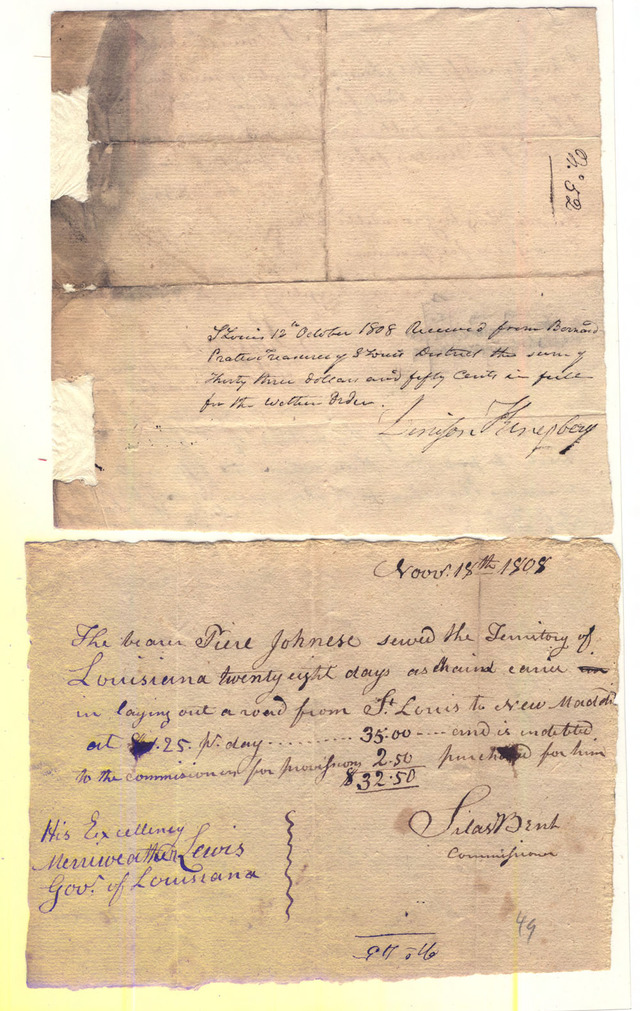 No. 52
St Louis 12th October 1808 Received from Bernard
Pratte Treasurer of St Louis District the sum of
thirty three dollars and fifty Cents in full
for the within Order.
Novr. 18th 1808
The bearer Piere Johnese served the Territory of
Louisiana twenty eight days as Chaind carier
in laying out a road from St Louis to New Maddrid
at $1.25. pr. day .......... 35.00 .... and is indebted
to the commisioners for provissions 2.50 purchased for him
$32.50
His Excellency
Merriweather Lewis
Govr. of Louisiana
Silas Bent
Commissioner
49